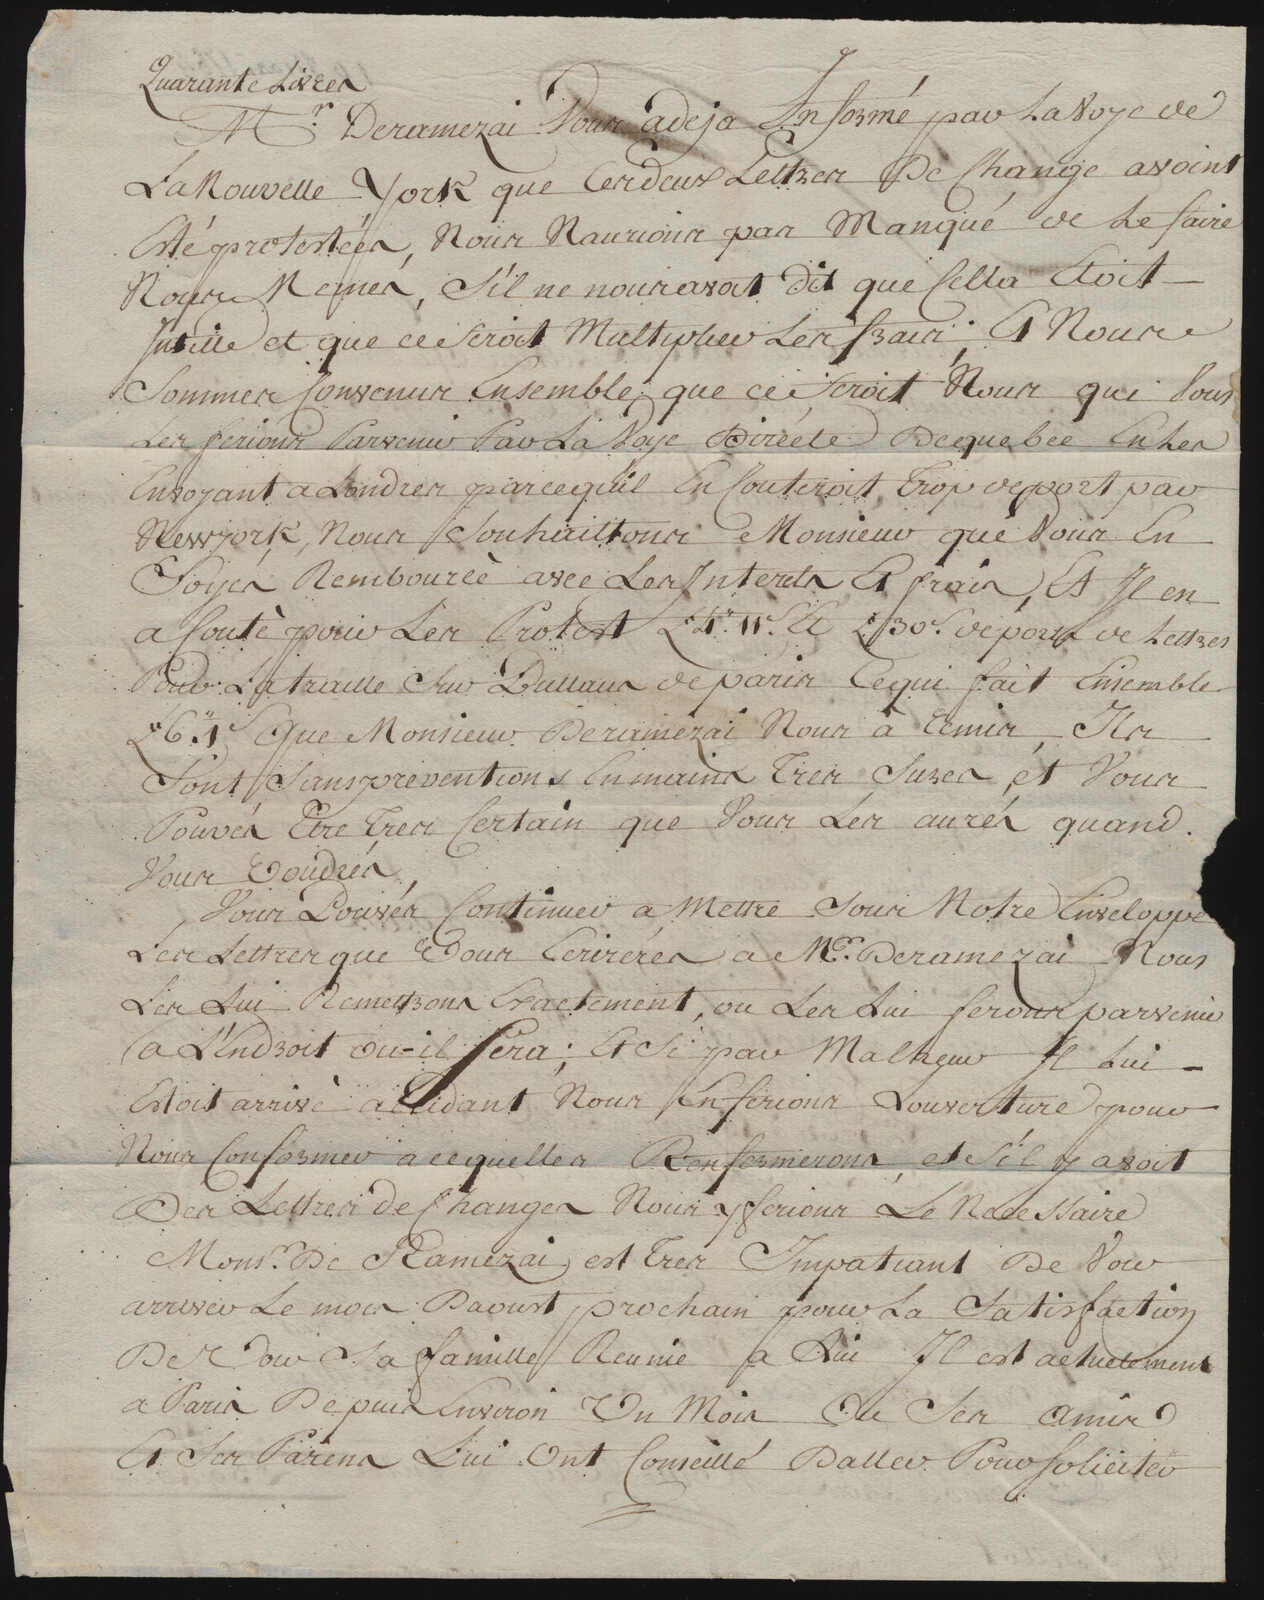 Quarante Livres
Mr. Deramezai Vous adeja Informé par La Voye de
La Nouvelle York que Ces deux Lettres De Change avoint
Esté protestées, Nous Naurions pas Manqué de Le faire
Nous Memes, S'il ne nous avoit Dit que Cella Etoit
Inutille et que ce seroit Multiplier Les frais; Et Nous
Sommes Convenus Ensemble, que ce seroit Nous qui Vous
Les ferions Parvenir Par La Voye Directe De quebec En Les
Envoyant a Londres parcequil En Couteroit Trop de port par
Newyork, Nous Souhaittons Monsieur que Vous En
Soyés Rembourcé avec Les Interets Et frais, Et Il en
a Couté pour Les Protest £4" 11s. Et £ 30s. de port de Lettres
Pour La traitte Sur Dullaus de paris Cequi fait Ensemble
£6" 1s Que Monsieur Deramezai Nous à remis, Ils
Sont Sans preventions En mains Tres Sures, et Vous
Pouvés Etre Tres Certain que Vous Les aurés quand
Vous Voudrés,
Vous Pouvés Continuer a Mettre Sous Notre Enveloppe
Les Lettres que Vous Ecrirés a Mr. Deramezai Nous
Les Lui Remettrons Exactement, ou Les Lui ferons parvenir
a L'Endroit Ou il Sera; Et Si par Malheur Il Lui
Estoit arrivé accidant Nous En ferions L'ouverture pour
Nous Conformer a cequelles Renfermerons, et S'il y avoit
Des Lettres de Changes Nous y ferions Le Necessaire
Monsr. De Ramezai est Tres Impatiant De Vous
arriver Le mois Daoust prochain pour La Satisfaction
De Voir Sa famille Reunie a Lui Il est actuelement
a Paris Depuis Environ Un Mois Ou Ses amis
Et Ses Parens Lui Ont Conseillé Daller Pour soliciter